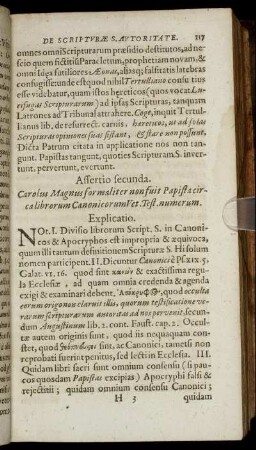 DE SCRIPTVRÆ S. AVTORITATE. 117
omnes omni Scripturarum præsidio destitutos, ad ne-
scio quem fictitiũ Paracletum, prophetiam novam, &
omni Idea futiliores Æonas, aliasq; falsitatis latebras
confugisse: unde est quod nihil Tertulliano consultius
videbatur, quam istos hæreticos (quos vocat Lu-
cifugas Scripturarum) ad ipsas Scripturas, tanquam
Latrones ad Tribunal attrahere. Coge, inquit Tertul-
lianus lib. de resurrect. carnis. hæreticos, ut ad solas
Scripturas opiniones suas sistant, & stare non possunt.
Dicta Patrum citata in applicatione nos non
tangunt. Papistas tangunt, quoties Scripturam S. inver-
tunt, pervertunt, evertunt.
Assertio secunda.
Carolus Magnus formaliter non fuit Papista cir-
ca librorum Canonicorum Vet. Test. numerum.
Explicatio.
NOt. I. Divisio librorum Script. S. in Canoni-
cos & Apocryphos est impropria & æquivoca,
quum illi tantum definitionem Scripturæ S. Hi solum
nomen participent. II. Dicuntur Canonicè Psx 19. 5.
Galat. VI. 16. quod sint κανὼν & exactissima regu-
la Ecclesiæ, ad quam omnia credenda & agenda
exigi & examinari debent. Ἀπόκρυφοι, quod occulta
eorum origo non claruit illis, quorum testificatione ve-
rarum scripturarum autoritas ad nos pervenit, secun-
dum Augustinum lib. 2. cont. Faust. cap. 2. Occul-
tæ autem originis, quod iis nequaquam con-
stet, quod sint, ac Canonici, tametsi non
reprobati fuerint penitus, sed lecti in Ecclesia. III.
Quidam libri sacri sunt omnium consensu (si pau-
cos quosdam Papistas excipias) Apocryphi falsi &
rejectitii; quidam omnium consensu Canonici;
H 3 quidam